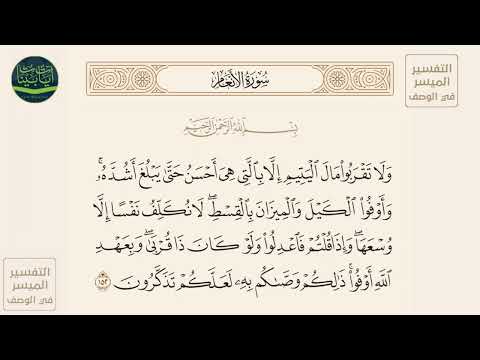 التفسير
الميسر
في الوصف
سُورَةُ الأَنْعَامِ
بِسْمِ اللَّهِ الرَّحْمَنِ الرَّحِيمِ
وَلَا تَقْرَبُوا۟ مَالَ ٱلْيَتِيمِ إِلَّا بِٱلَّتِى هِىَ أَحْسَنُ حَتَّىٰ يَبْلُغَ أَشُدَّهُۥۚ
وَأَوْفُوا۟ ٱلْكَيْلَ وَٱلْمِيزَانَ بِٱلْقِسْطِۖ لَا نُكَلِّفُ نَفْسًا إِلَّا
وُسْعَهَاۖ وَإِذَا قُلْتُمْ فَٱعْدِلُوا۟ وَلَوْ كَانَ ذَا قُرْبَىٰۖ وَبِعَهْدِ
ٱللَّهِ أَوْفُوا۟ۚ ذَٰلِكُمْ وَصَّىٰكُم بِهِۦ لَعَلَّكُمْ تَذَكَّرُونَ ١٥٢
التفسير
الميسر
في الوصف